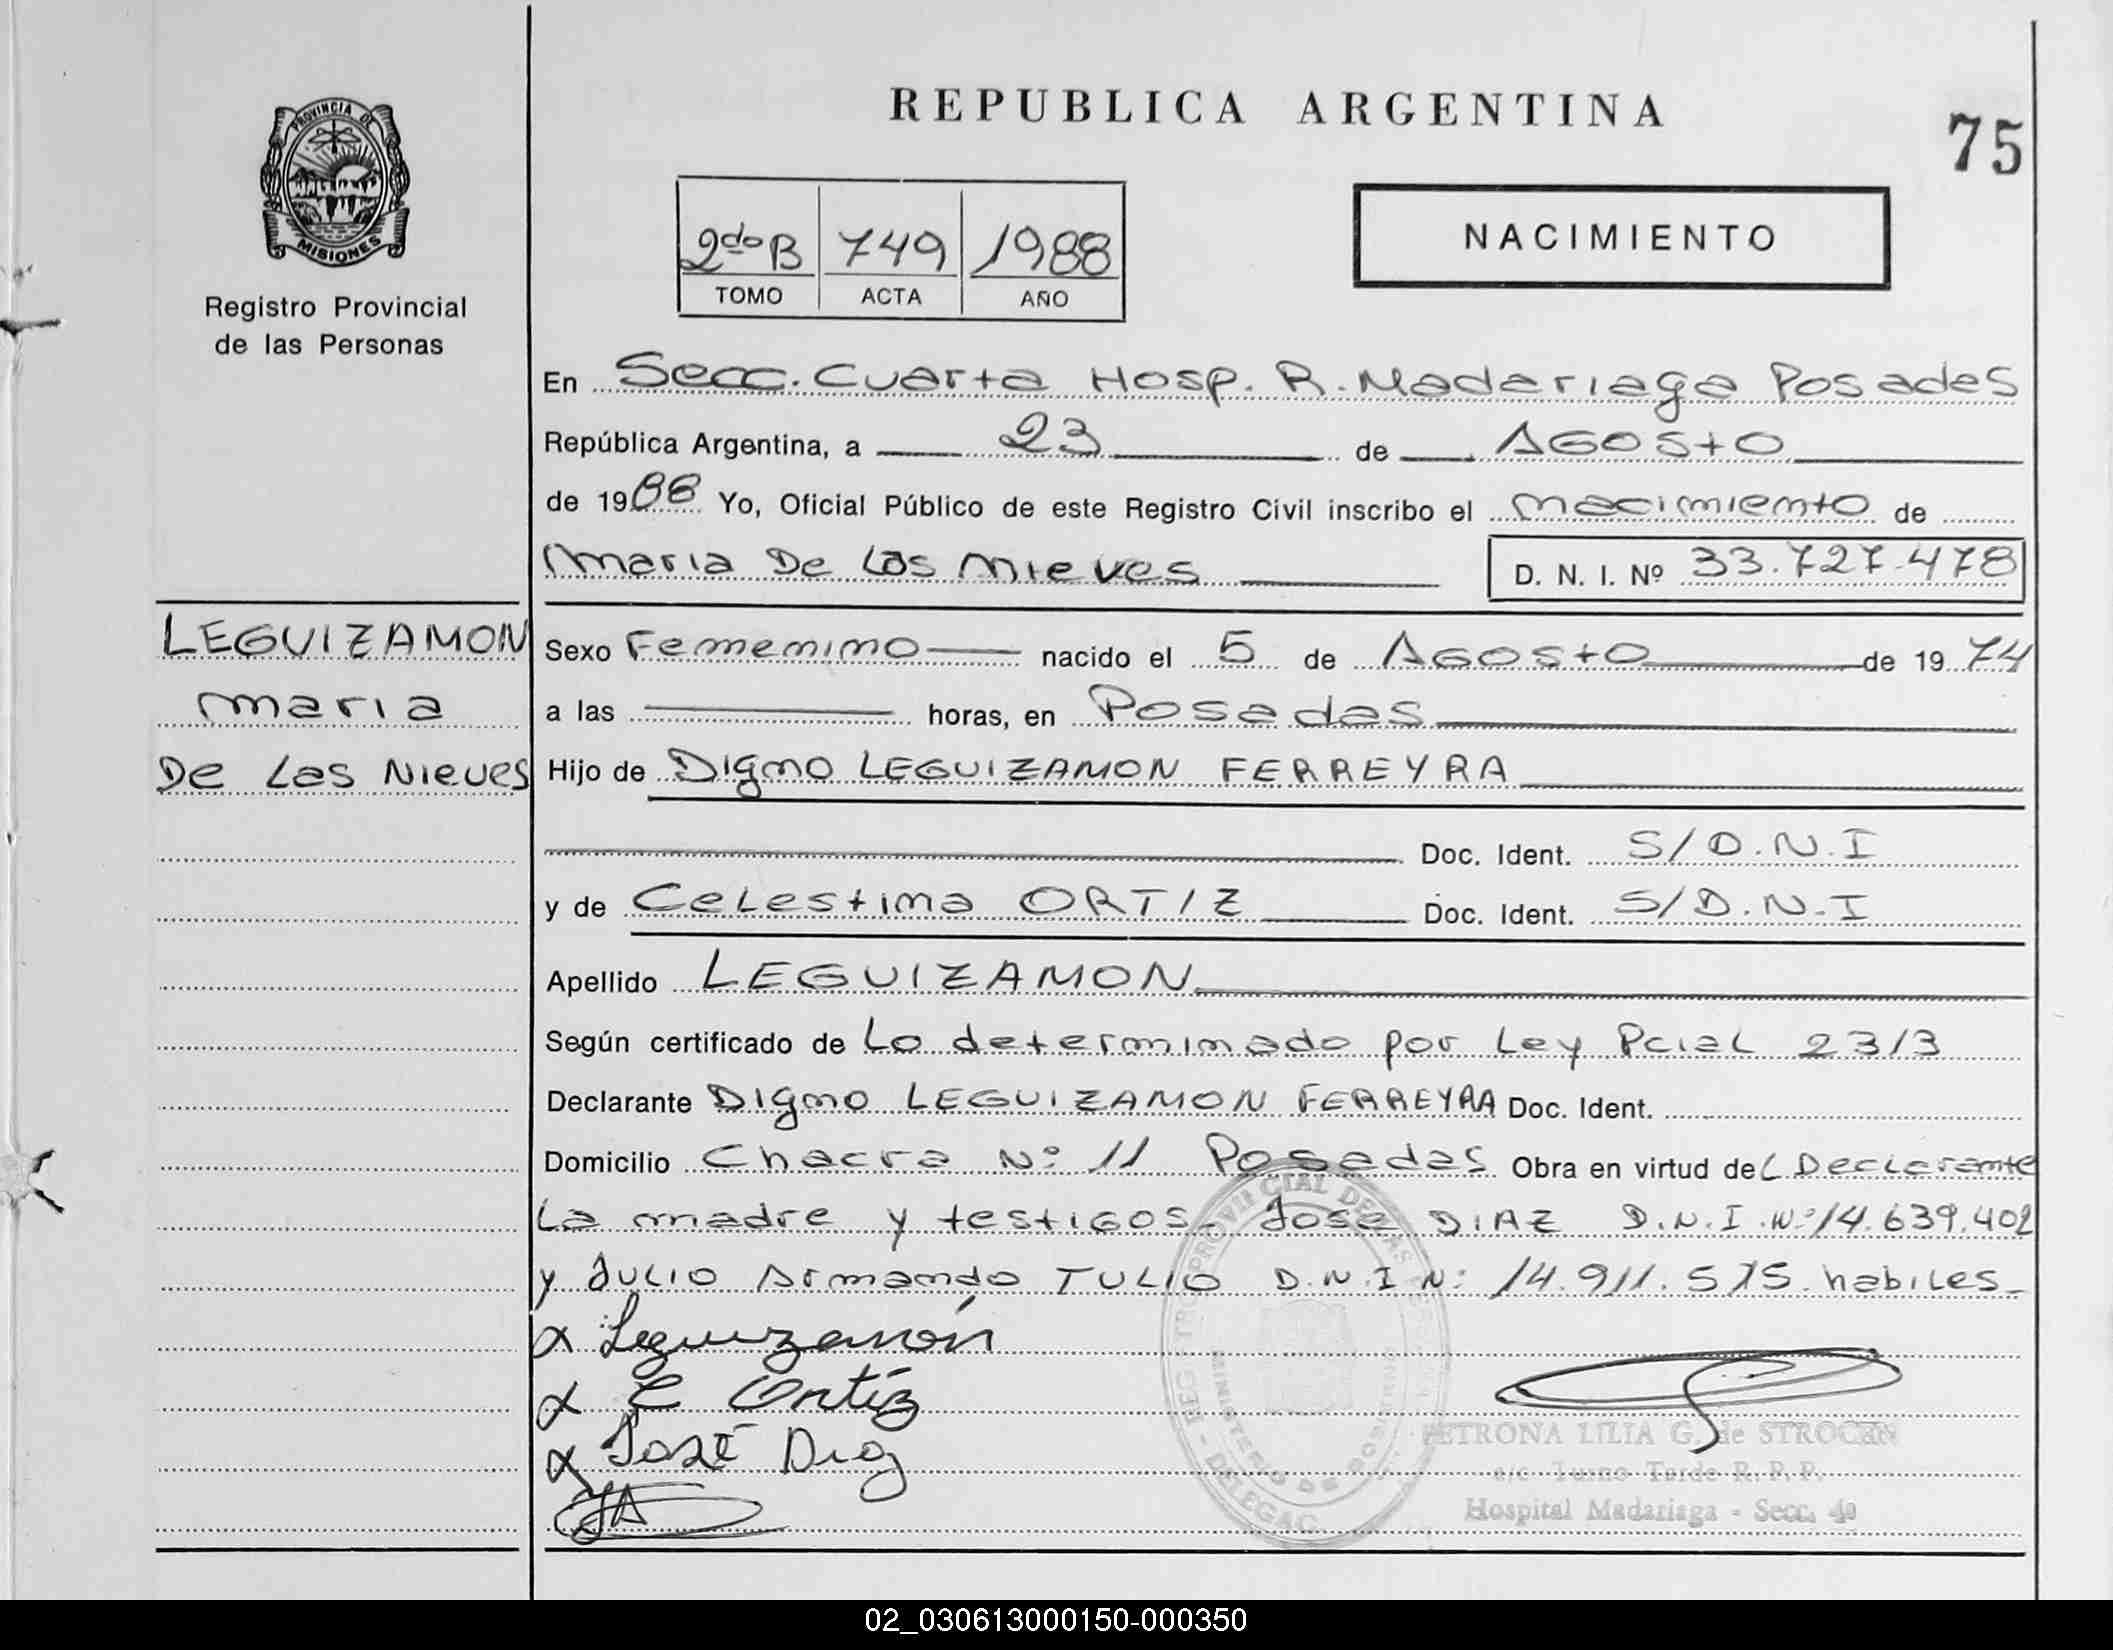 PROVINCIA DE
MISIONES
Registro Provincial
de las Personas
REPUBLICA ARGENTINA
75
2do B 749 1988
TOMO ACTA AÑO
NACIMIENTO
En Secc. Cuarta Hosp. R. Madariaga Posadas
República Argentina, a 23 de AGOSTO
de 1988 Yo, Oficial Público de este Registro Civil inscribo el nacimiento de
Maria De Las Nieves D. N. I. Nº 33.727.478
LEGUIZAMON
Maria
De Las Nieves
Sexo Femenino nacido el 5 de AGOSTO de 1974
a las horas, en Posadas
Hijo de Digno LEGUIZAMON FERREYRA
Doc. Ident. S/D.N.I
y de Celestina ORTIZ Doc. Ident. S/D.N.I
Apellido LEGUIZAMON
Según certificado de Lo determinado por Ley Pcial 2313
Declarante Digno LEGUIZAMON FERREYRA Doc. Ident.
Domicilio Chacra Nº 11 Posadas Obra en virtud del Declarante
La madre y testigos - Jose DIAZ D.N.I.Nº 14.639.402
y Julio Armando TULIO D.N.I N: 14.911.515 habiles-
x Leguizamón
x C Ortíz
x José Diaz
PETRONA LILIA G. de STROCEN
a/c Turno Tarde R. P. P.
Hospital Madariaga - Secc. 4a
02_030613000150-000350